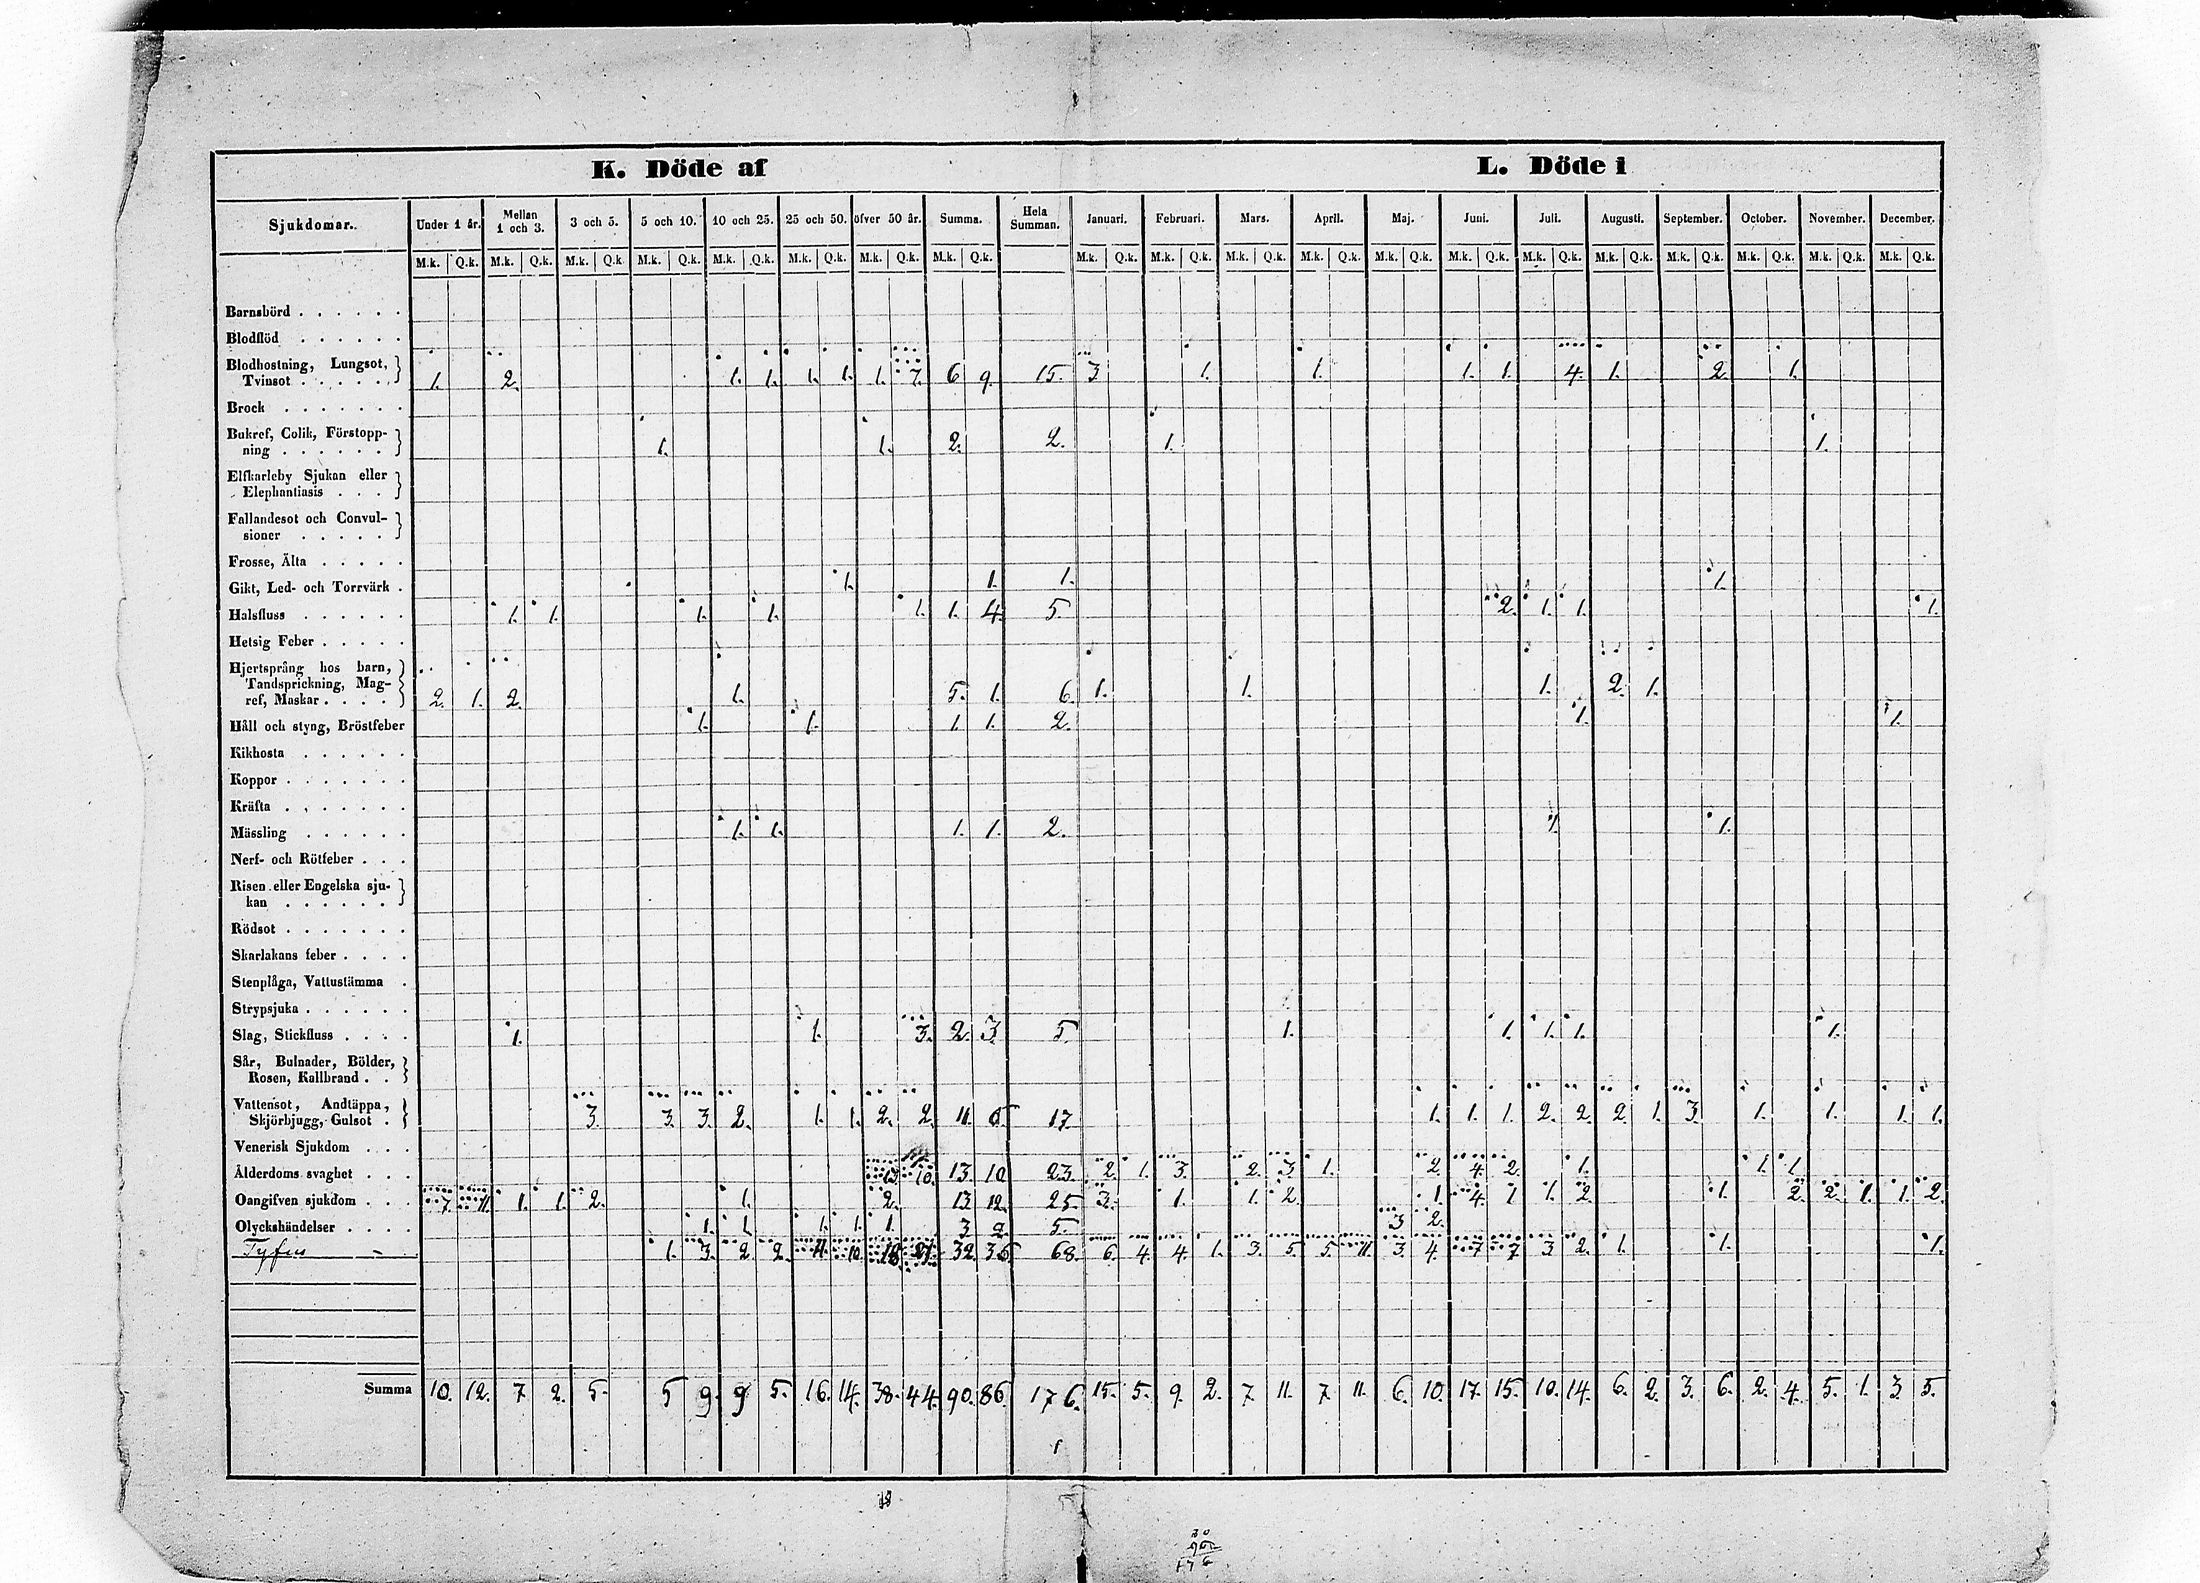 K. Döde af L. Döde i
Sjukdomar. Under 1 år. Mellan 1 och 3. 3 och 5. 5 och 10. 10 och 25. 25 och 50. öfver 50 år. Summa. Hela Summan. Januari. Februari. Mars. April. Maj. Juni. Juli. Augusti. September. October. November. December.
M.k. Q.k. M.k. Q.k. M.k. Q.k. M.k. Q.k. M.k. Q.k. M.k. Q.k. M.k. Q.k. M.k. Q.k. M.k. Q.k. M.k. Q.k. M.k. Q.k. M.k. Q.k. M.k. Q.k. M.k. Q.k. M.k. Q.k. M.k. Q.k. M.k. Q.k. M.k. Q.k. M.k. Q.k. M.k. Q.k.
Barnsbörd . . . . . .
Blodflöd . . . . . .
Blodhostning, Lungsot,
Tvinsot . . . . . 1. 2. 1. 1. 1. 1. 1. 7. 6 9. 15. 3 1. 1. 1. 1. 4. 1. 2. 1.
Brock . . . . . . .
Bukref, Colik, Förstopp-
ning . . . . . . 1. 1. 2. 2. 1. 1.
Elfkarleby Sjukan eller
Elephantiasis . . .
Fallandesot och Convul-
sioner . . . . .
Frosse, Älta . . . . .
Gikt, Led- och Torrvärk . 1. 1. 1. 1.
Halsfluss . . . . . . 1. 1. 1. 1. 1. 1. 4. 5. 2. 1. 1. 1.
Hetsig Feber . . . . .
Hjertsprång hos barn,
Tandsprickning, Mag-
ref, Maskar . . . . 2. 1. 2. 1. 5. 1. 6. 1. 1. 1. 2. 1.
Håll och styng, Bröstfeber 1. 1. 1. 1. 2. 1. 1.
Kikhosta . . . . . .
Koppor . . . . . . .
Kräfta . . . . . . .
Mässling . . . . . . 1. 1. 1. 1. 2. 1. 1.
Nerf- och Rötfeber . . .
Risen eller Engelska sju-
kan . . . . . .
Rödsot . . . . . . .
Skarlakans feber . . . .
Stenplåga, Vattustämma .
Strypsjuka . . . . . .
Slag, Stickfluss . . . . 1. 1. 3. 2. 3. 5 1. 1. 1. 1. 1.
Sår, Bulnader, Bölder,
Rosen, Kallbrand . .
Vattensot, Andtäppa,
Skjörbjugg, Gulsot . 3. 3. 3. 2. 1. 1. 2. 2. 11. 6 17. 1. 1. 1. 2. 2. 2. 1. 3. 1. 1. 1. 1.
Venerisk Sjukdom . . .
Ålderdoms svaghet . . . 13 10. 13. 10 23. 2. 1. 3. 2. 3. 1. 2. 4. 2. 1. 1. 1.
Oangifven sjukdom . . . 7. 11. 1. 1. 2. 1. 2. 13 12. 25. 3. 1. 1. 2. 1. 4. 1 1. 2. 1. 2. 2. 1. 1. 2.
Olyckshändelser . . . . 1. 1. 1. 1. 1. 3 2 5. 3 2.
Tyfus – 1. 3. 2. 2. 11. 10. 18. 21. 32. 36. 68. 6. 4. 4. 1. 3. 5. 5. 11. 3. 4. 7 7 3 2. 1. 1. 1.
Summa 10. 12. 7. 2. 5. 5 9. 9 5. 16. 14. 38. 44. 90. 86. 176. 15. 5. 9. 2. 7. 11. 7. 11. 6. 10. 17. 15. 10. 14. 6. 2. 3. 6. 2. 4. 5. 1. 3. 5.
176